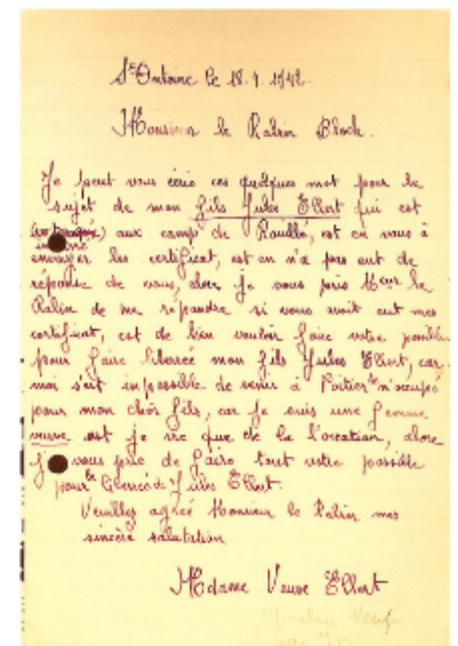 St Antoine le 18.9.1942
Monsieur le Rabin Bloch.
Je peut vous écrie ces quelques mot pour le
sujet de mon fils Jules Ellert qui est
interné) aux camp de Rouillé, est on vous à
envoyer les certificat, est on n'a pas eut de
réponse de vous, alors je vous pris Meur le
Rabin de me répondre si vous avoit eut mes
certificat, est de bien vouloir faire votre possible
pour faire liberée mon fils Jules Ellert, car
moi s'est impossible de venir à Poitier m'occupé
pour mon chér fils, car je suis une femme
veuve est je vie que de la l'ocation, alors
je vous prie de faire tout votre possible
pour Jules Ellert.
Veuillez agréé Monsieur le Rabin mes
sincère salutation
Madame Veuve Ellert